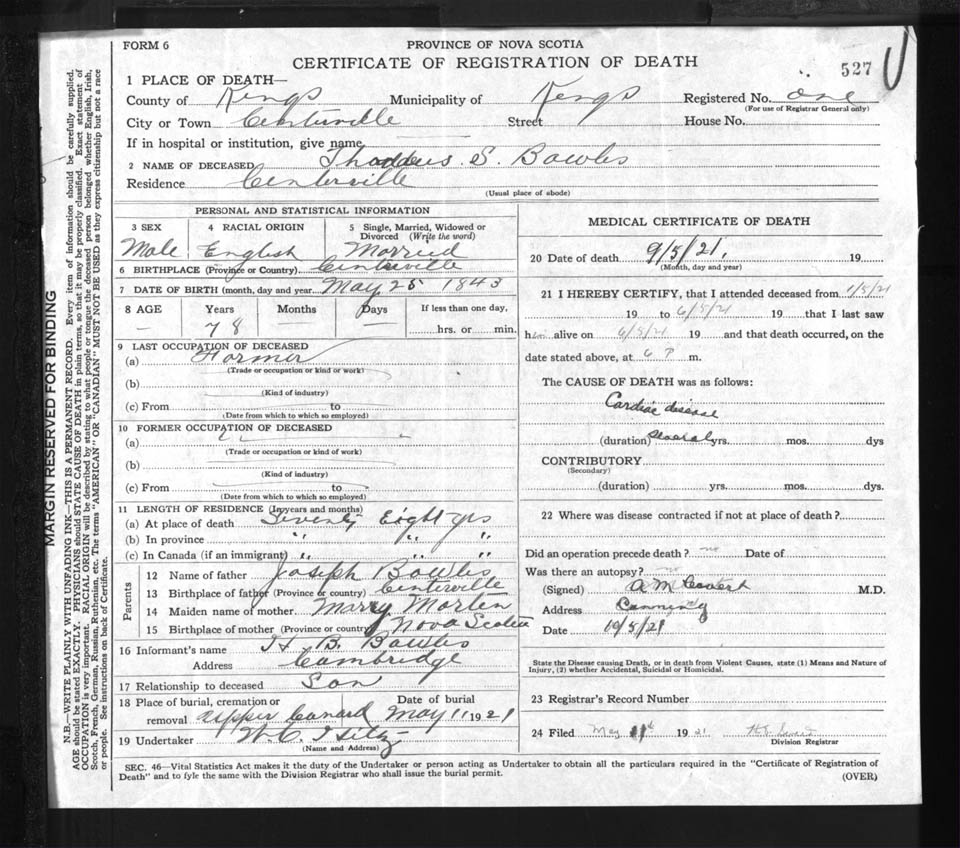 FORM 6
PROVINCE OF NOVA SCOTIA
CERTIFICATE OF REGISTRATION OF DEATH
527
1 PLACE OF DEATH—
County of Kings Municipality of Kings Registered No. one
(For use of Registrar General only)
City or Town Centerville Street House No.
If in hospital or institution, give name
2 NAME OF DECEASED Thaddeus S. Bowles
Residence Centerville
(Usual place of abode)
PERSONAL AND STATISTICAL INFORMATION
3 SEX 4 RACIAL ORIGIN 5 Single, Married, Widowed or
Divorced (Write the word)
Male English Married
6 BIRTHPLACE (Province or Country) Centerville
7 DATE OF BIRTH (month, day and year) May 25 1843
8 AGE Years Months Days If less than one day,
— 78 hrs. or min.
9 LAST OCCUPATION OF DECEASED
(a) Farmer
(Trade or occupation or kind or work)
(b)
(Kind of industry)
(c) From to
(Date from which to which so employed)
10 FORMER OCCUPATION OF DECEASED
(a)
(Trade or occupation or kind of work)
(b)
(Kind of industry)
(c) From to
(Date from which to which so employed)
11 LENGTH OF RESIDENCE (In years and months)
(a) At place of death Seventy Eight yrs
(b) In province " " "
(c) In Canada (if an immigrant) " " "
Parents
12 Name of father Joseph Bowles
13 Birthplace of father (Province or country) Centerville
14 Maiden name of mother Marry Morten
15 Birthplace of mother (Province or country) Nova Scotia
16 Informant's name H. B. Bowles
Address Cambridge
17 Relationship to deceased Son
18 Place of burial, cremation or Date of burial
removal Upper Canard May 11 1921
19 Undertaker W. C.
(Name and Address)
MEDICAL CERTIFICATE OF DEATH
20 Date of death 9/5/21. 19
(Month, day and year)
21 I HEREBY CERTIFY, that I attended deceased from 1/5/21
19 to 6/5/21 19 that I last saw
him alive on 6/5/21 19 and that death occurred, on the
date stated above, at 6 P m.
The CAUSE OF DEATH was as follows:
Cardiac disease
(duration) several yrs. mos. dys
CONTRIBUTORY
(Secondary)
(duration) yrs. mos. dys.
22 Where was disease contracted if not at place of death?
Did an operation precede death? no Date of
Was there an autopsy? no
(Signed) A M Covert M.D.
Address Canning
Date 10/5/21
State the Disease causing Death, or in death from Violent Causes, state (1) Means and Nature of
Injury, (2) whether Accidental, Suicidal or Homicidal.
23 Registrar's Record Number
24 Filed May 1921
Division Registrar
SEC. 46—Vital Statistics Act makes it the duty of the Undertaker or person acting as Undertaker to obtain all the particulars required in the "Certificate of Registration of
Death" and to fyle the same with the Division Registrar who shall issue the burial permit.
(OVER)
MARGIN RESERVED FOR BINDING
N.B.—WRITE PLAINLY WITH UNFADING INK—THIS IS A PERMANENT RECORD. Every item of information should be carefully supplied.
AGE should be stated EXACTLY. PHYSICIANS should STATE CAUSE OF DEATH in plain terms, so that it may be properly classified. Exact statement of
OCCUPATION is very important. RACIAL ORIGIN will be described by stating to what people or tongue the deceased person belonged whether English, Irish,
Scotch, French, German, Russian, Ruthenian, etc. The terms "AMERICAN" OR "CANADIAN" MUST NOT BE USED as they express citizenship but not a race
or people. See instructions on back of Certificate.